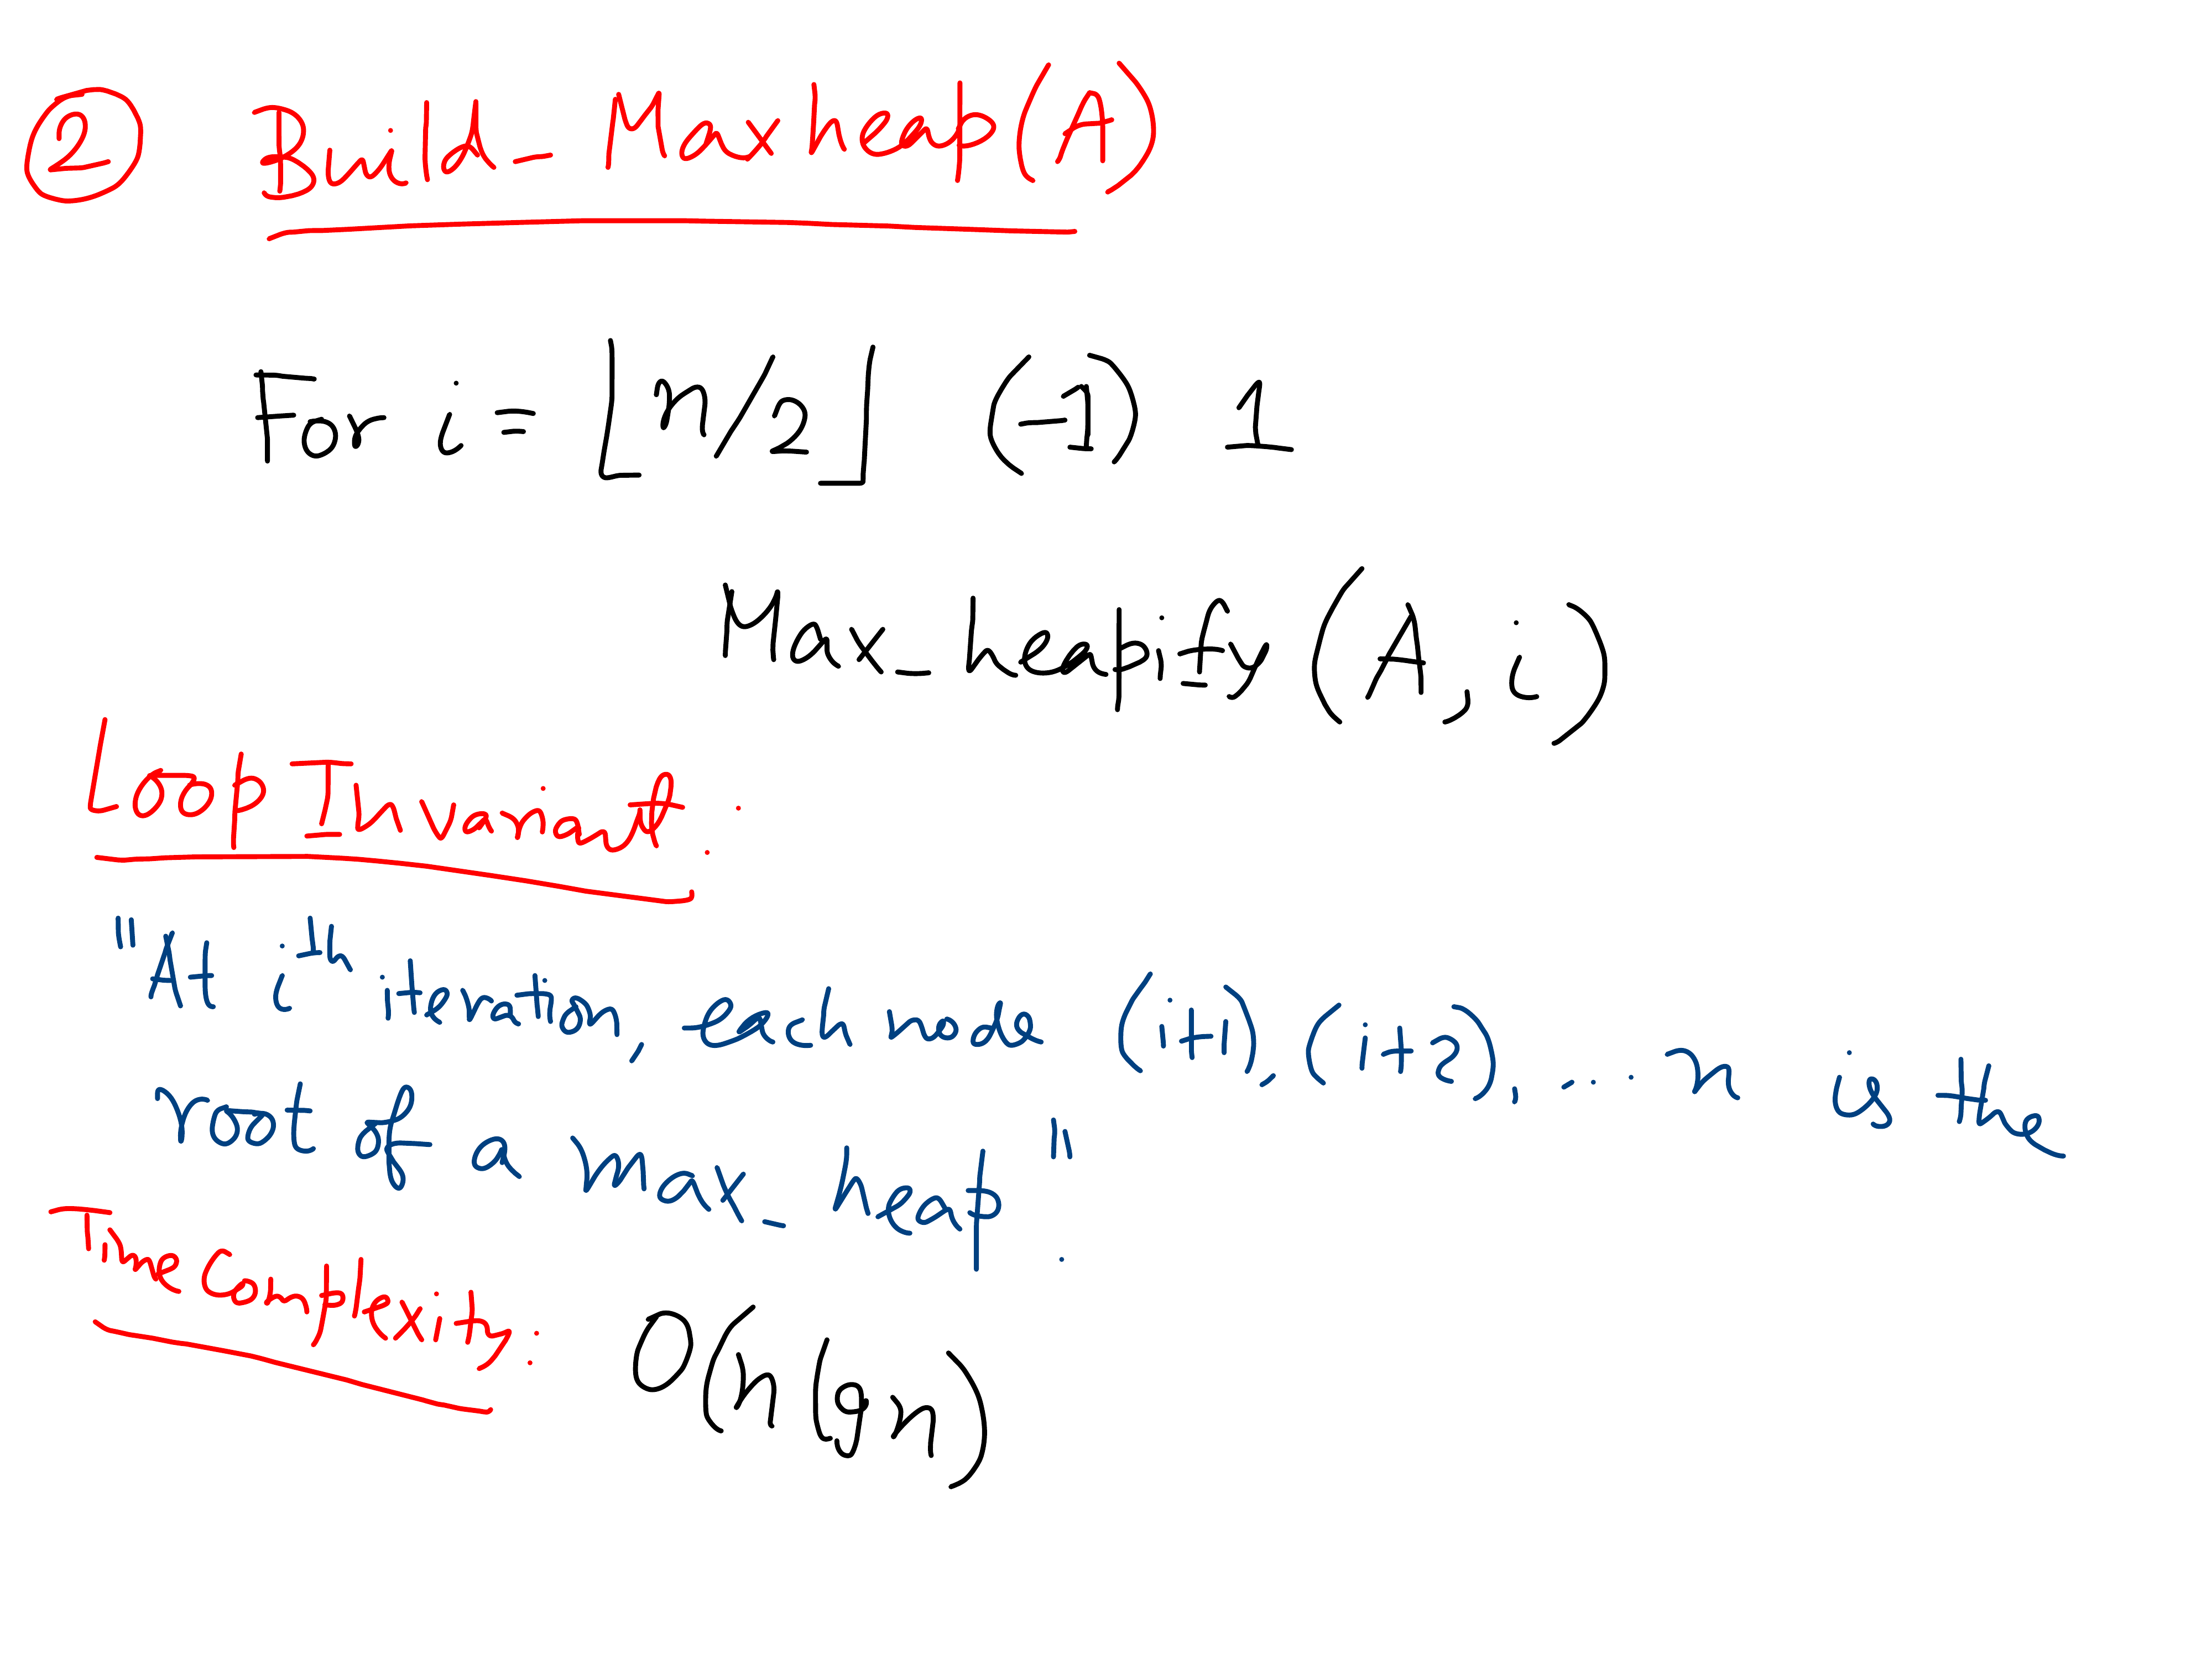 ② Build_Maxheap(A)
For i = ⌊n/2⌋ (-1) 1
Max_heapify (A, i)
Loop Invariant :
"At iᵗʰ iteration, each node (i+1), (i+2), ... n is the
root of a max_heap".
Time Complexity:
O(n lg n)